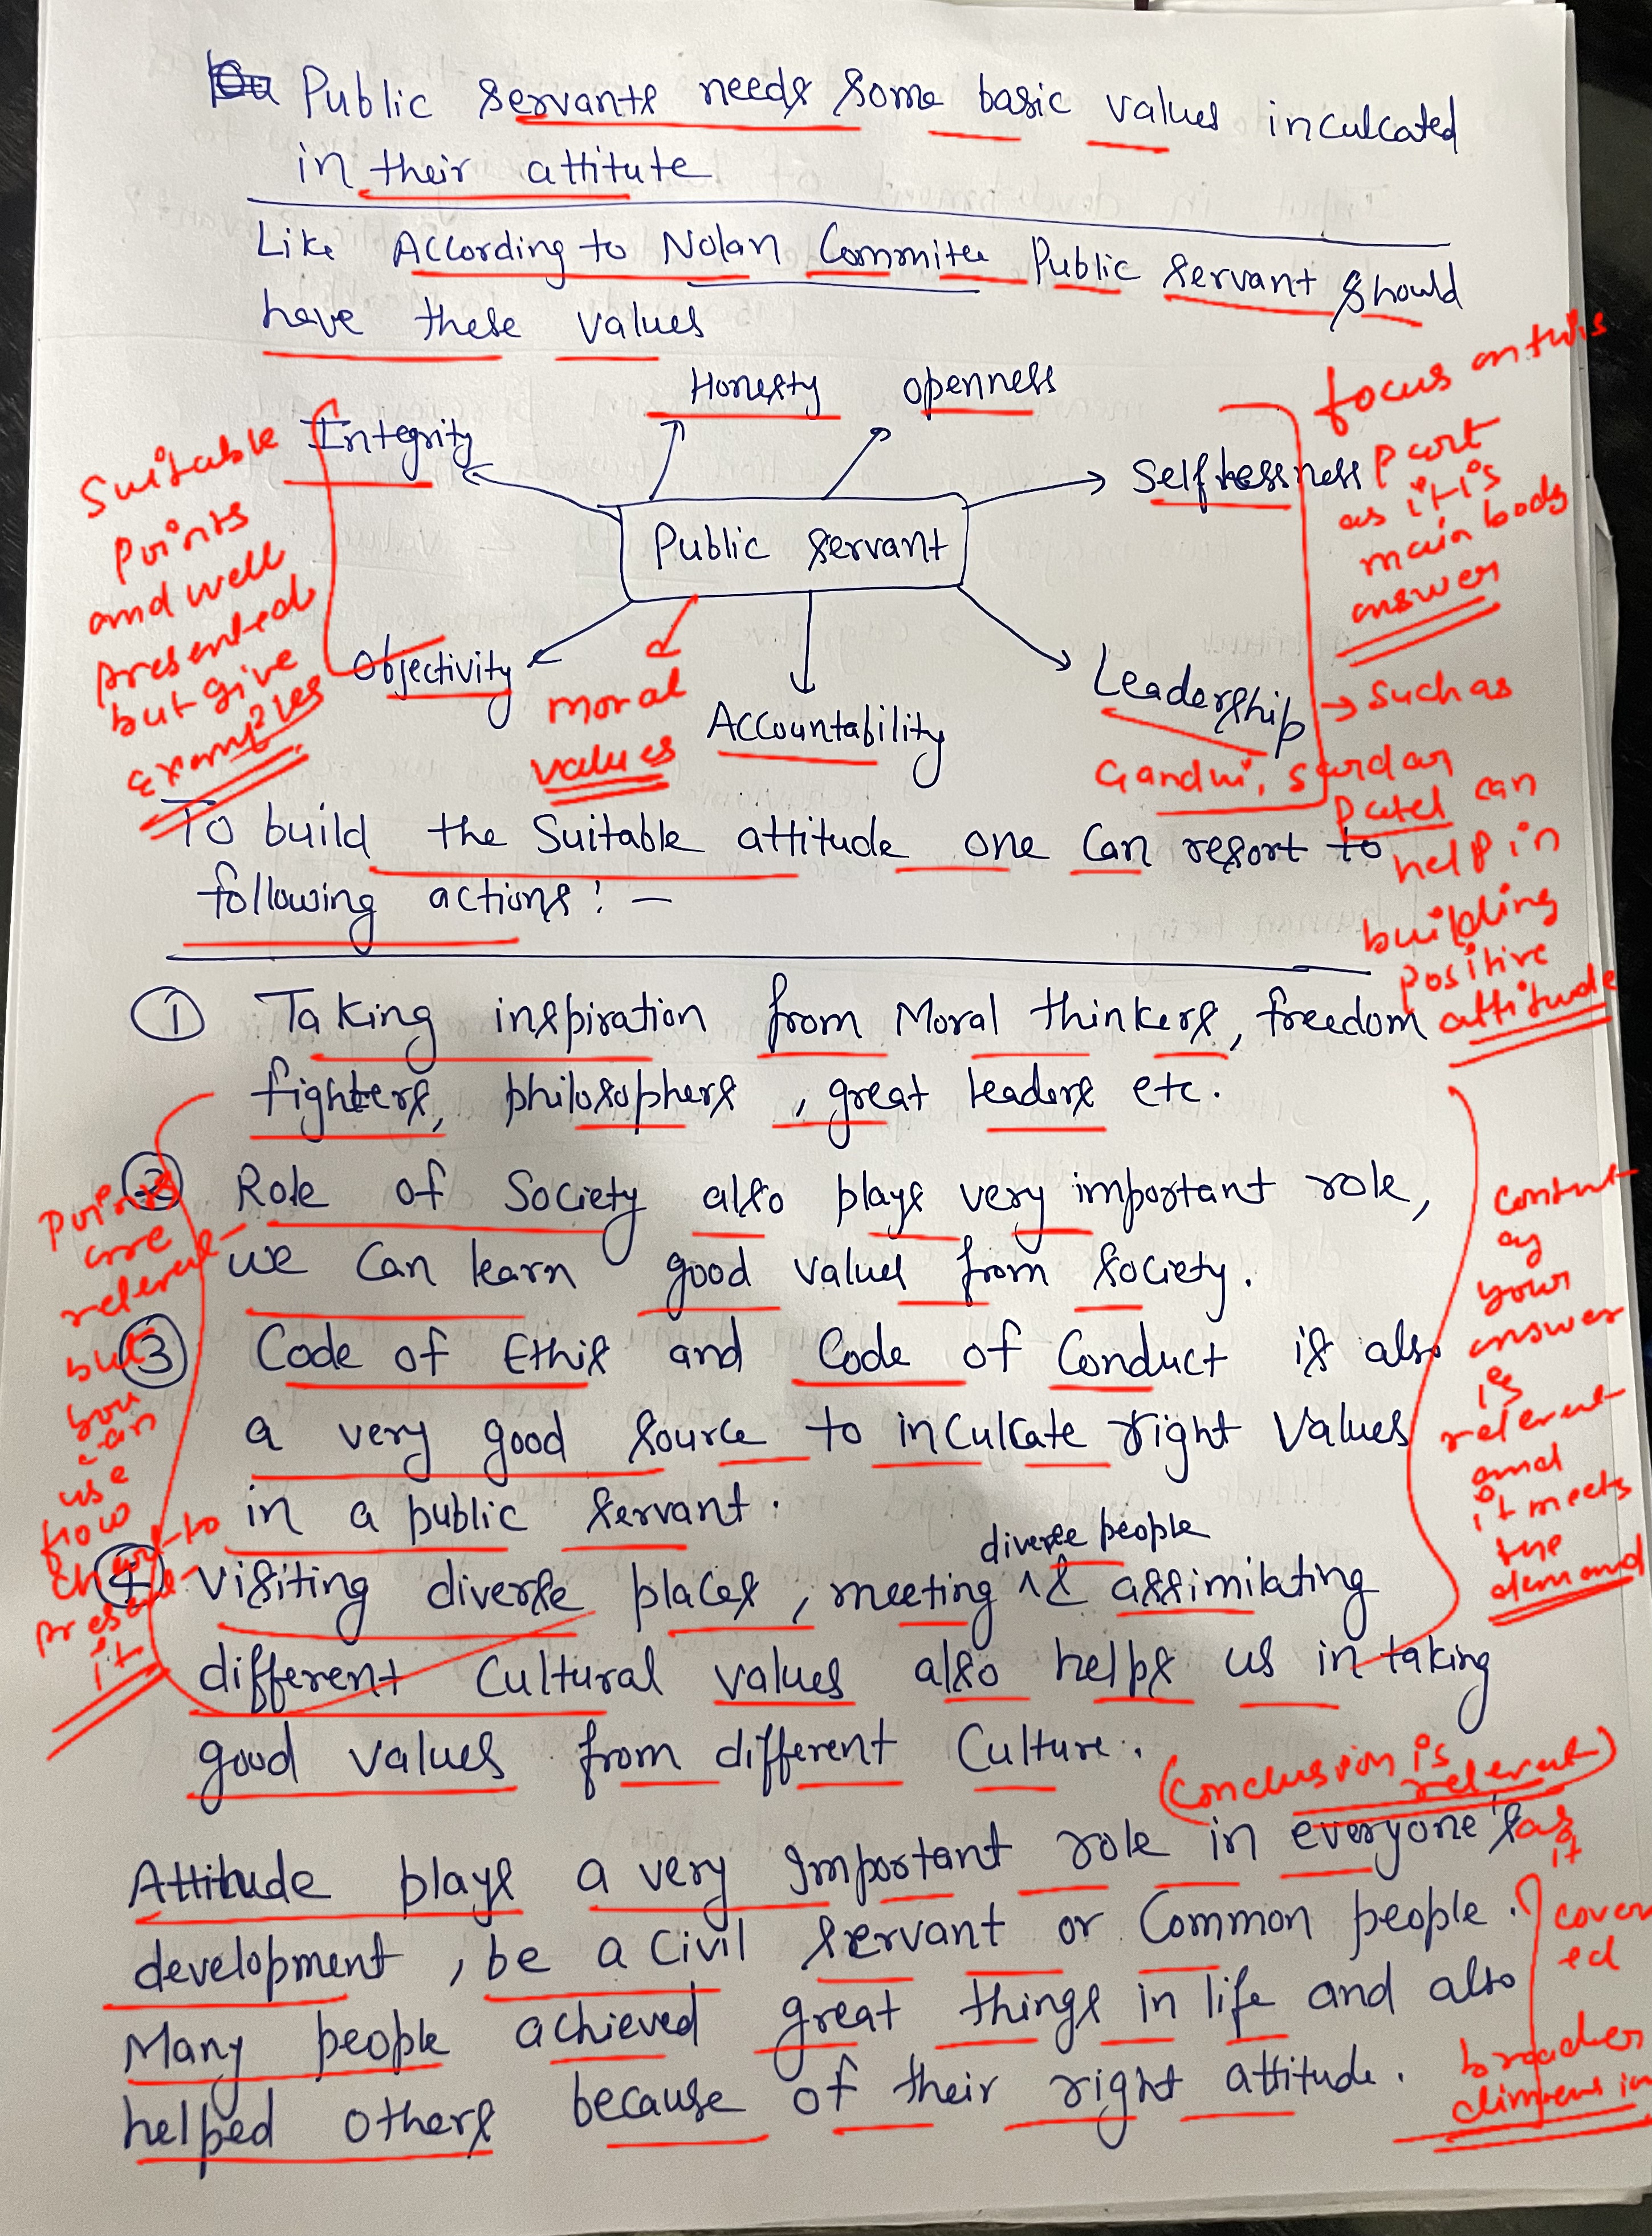 Public servants needs some basic values inculcated
in their attitute
Like According to Nolan Commitee Public servant should
have these values
Honesty
openness
Integrity
Selflessness
Public servant
Objectivity
Accountability
Leadership
Suitable
points
and well
presented
but give
examples
moral
values
focus on this
part
as it is
main body
answer
→ Such as
Gandhi, Sardar
Patel can
help in
building
positive
attitude
To build the Suitable attitude one Can resort to
following actions: —
① Taking inspiration from Moral thinkers, freedom
fighters, philosophers, great leaders etc.
② Role of Society also plays very important role,
we Can learn good values from society.
③ Code of Ethis and Code of Conduct is also
a very good source to inculcate right values
in a public servant.
④ visiting diverse places, meeting diverse people & assimilating
different Cultural values also helps us in taking
good values from different Culture.
Points
are
relevent
but
you
can
use
flow
chart to
present
it
content
of
your
answer
is
relevent
and
it meets
the
demand
(Conclusion is
relevent)
as
it
cover
ed
broader
Attitude plays a very Important role in everyone's
development, be a Civil servant or Common people.
Many people achieved great things in life and also
helped others because of their right attitude.